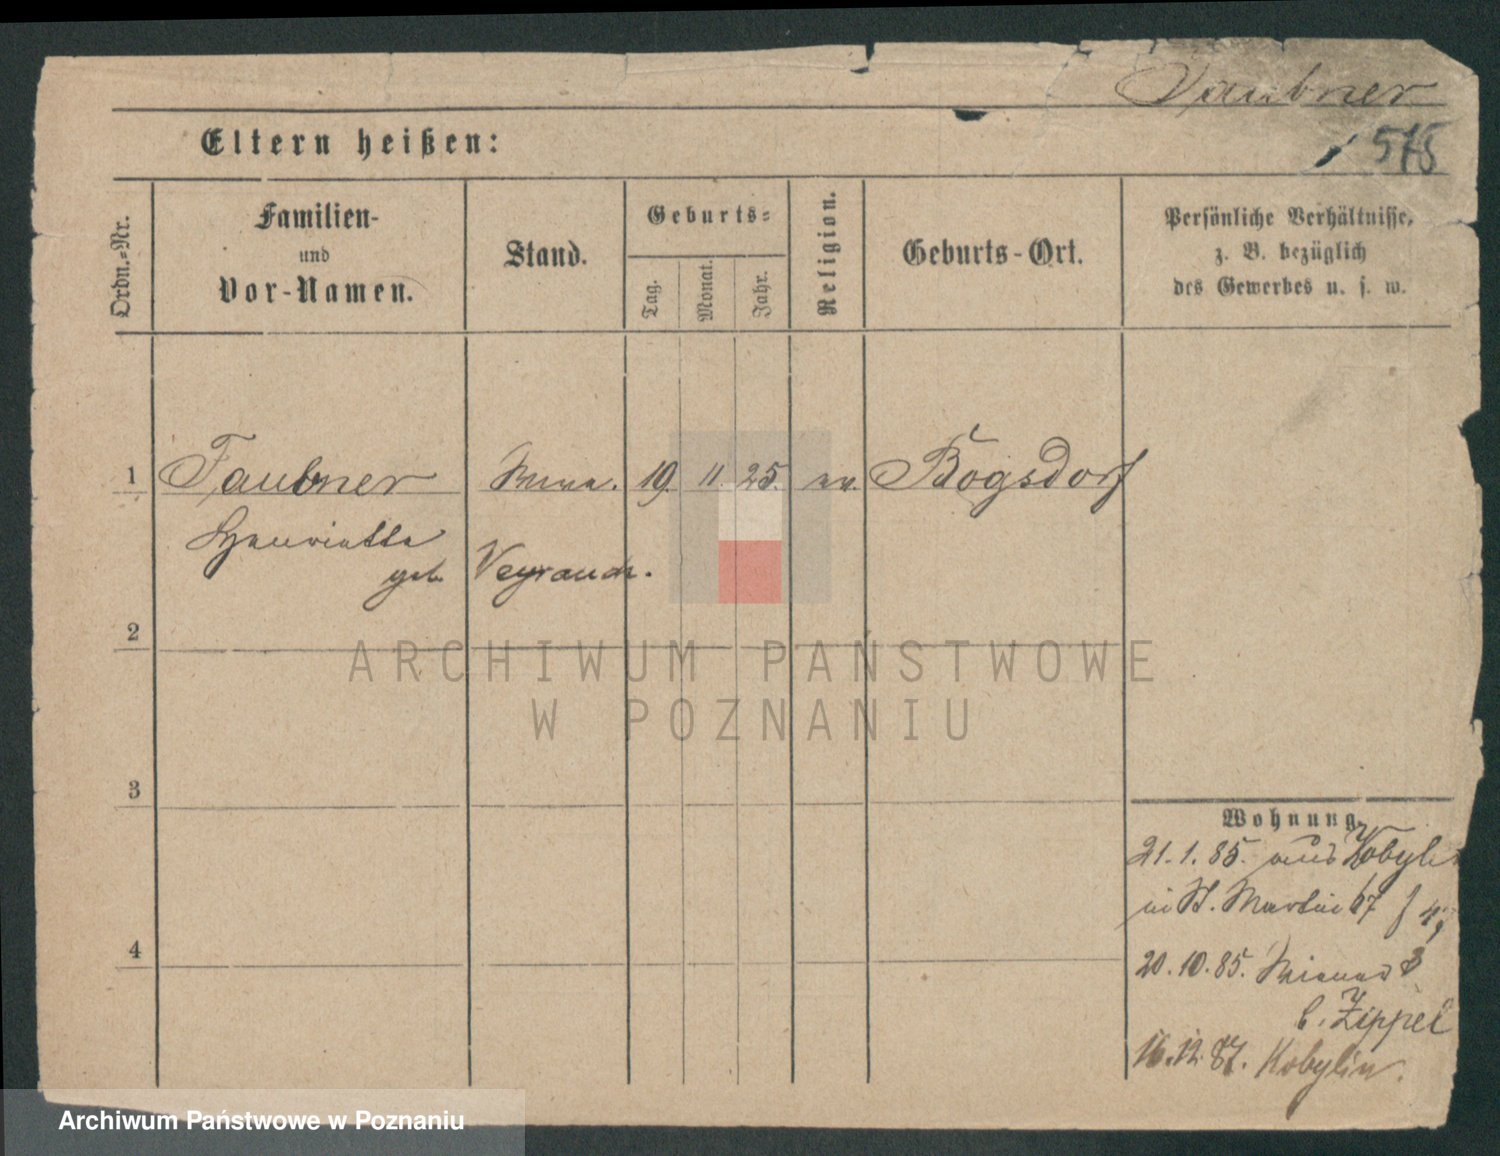 Taubner
575
Eltern heißen:
Ordn.-Nr.
Familien-
und
Vor-Namen.
Stand.
Geburts-
Tag.
Monat.
Jahr.
Religion.
Geburts-Ort.
Persönliche Verhältnisse,
z. B. bezüglich
des Gewerbes u. s. w.
1 Taubner Wwe. 19. 11. 25. ev. Bogsdorf
Henriette
geb. Veyrauch.
2
ARCHIWUM PAŃSTWOWE
W POZNANIU
3
4
Wohnung.
21.1.85. aus Kobylin
in St. Martin 67
20.10.85. Wiener 3
b. Zippel
16.12.87. Kobylin.
Archiwum Państwowe w Poznaniu